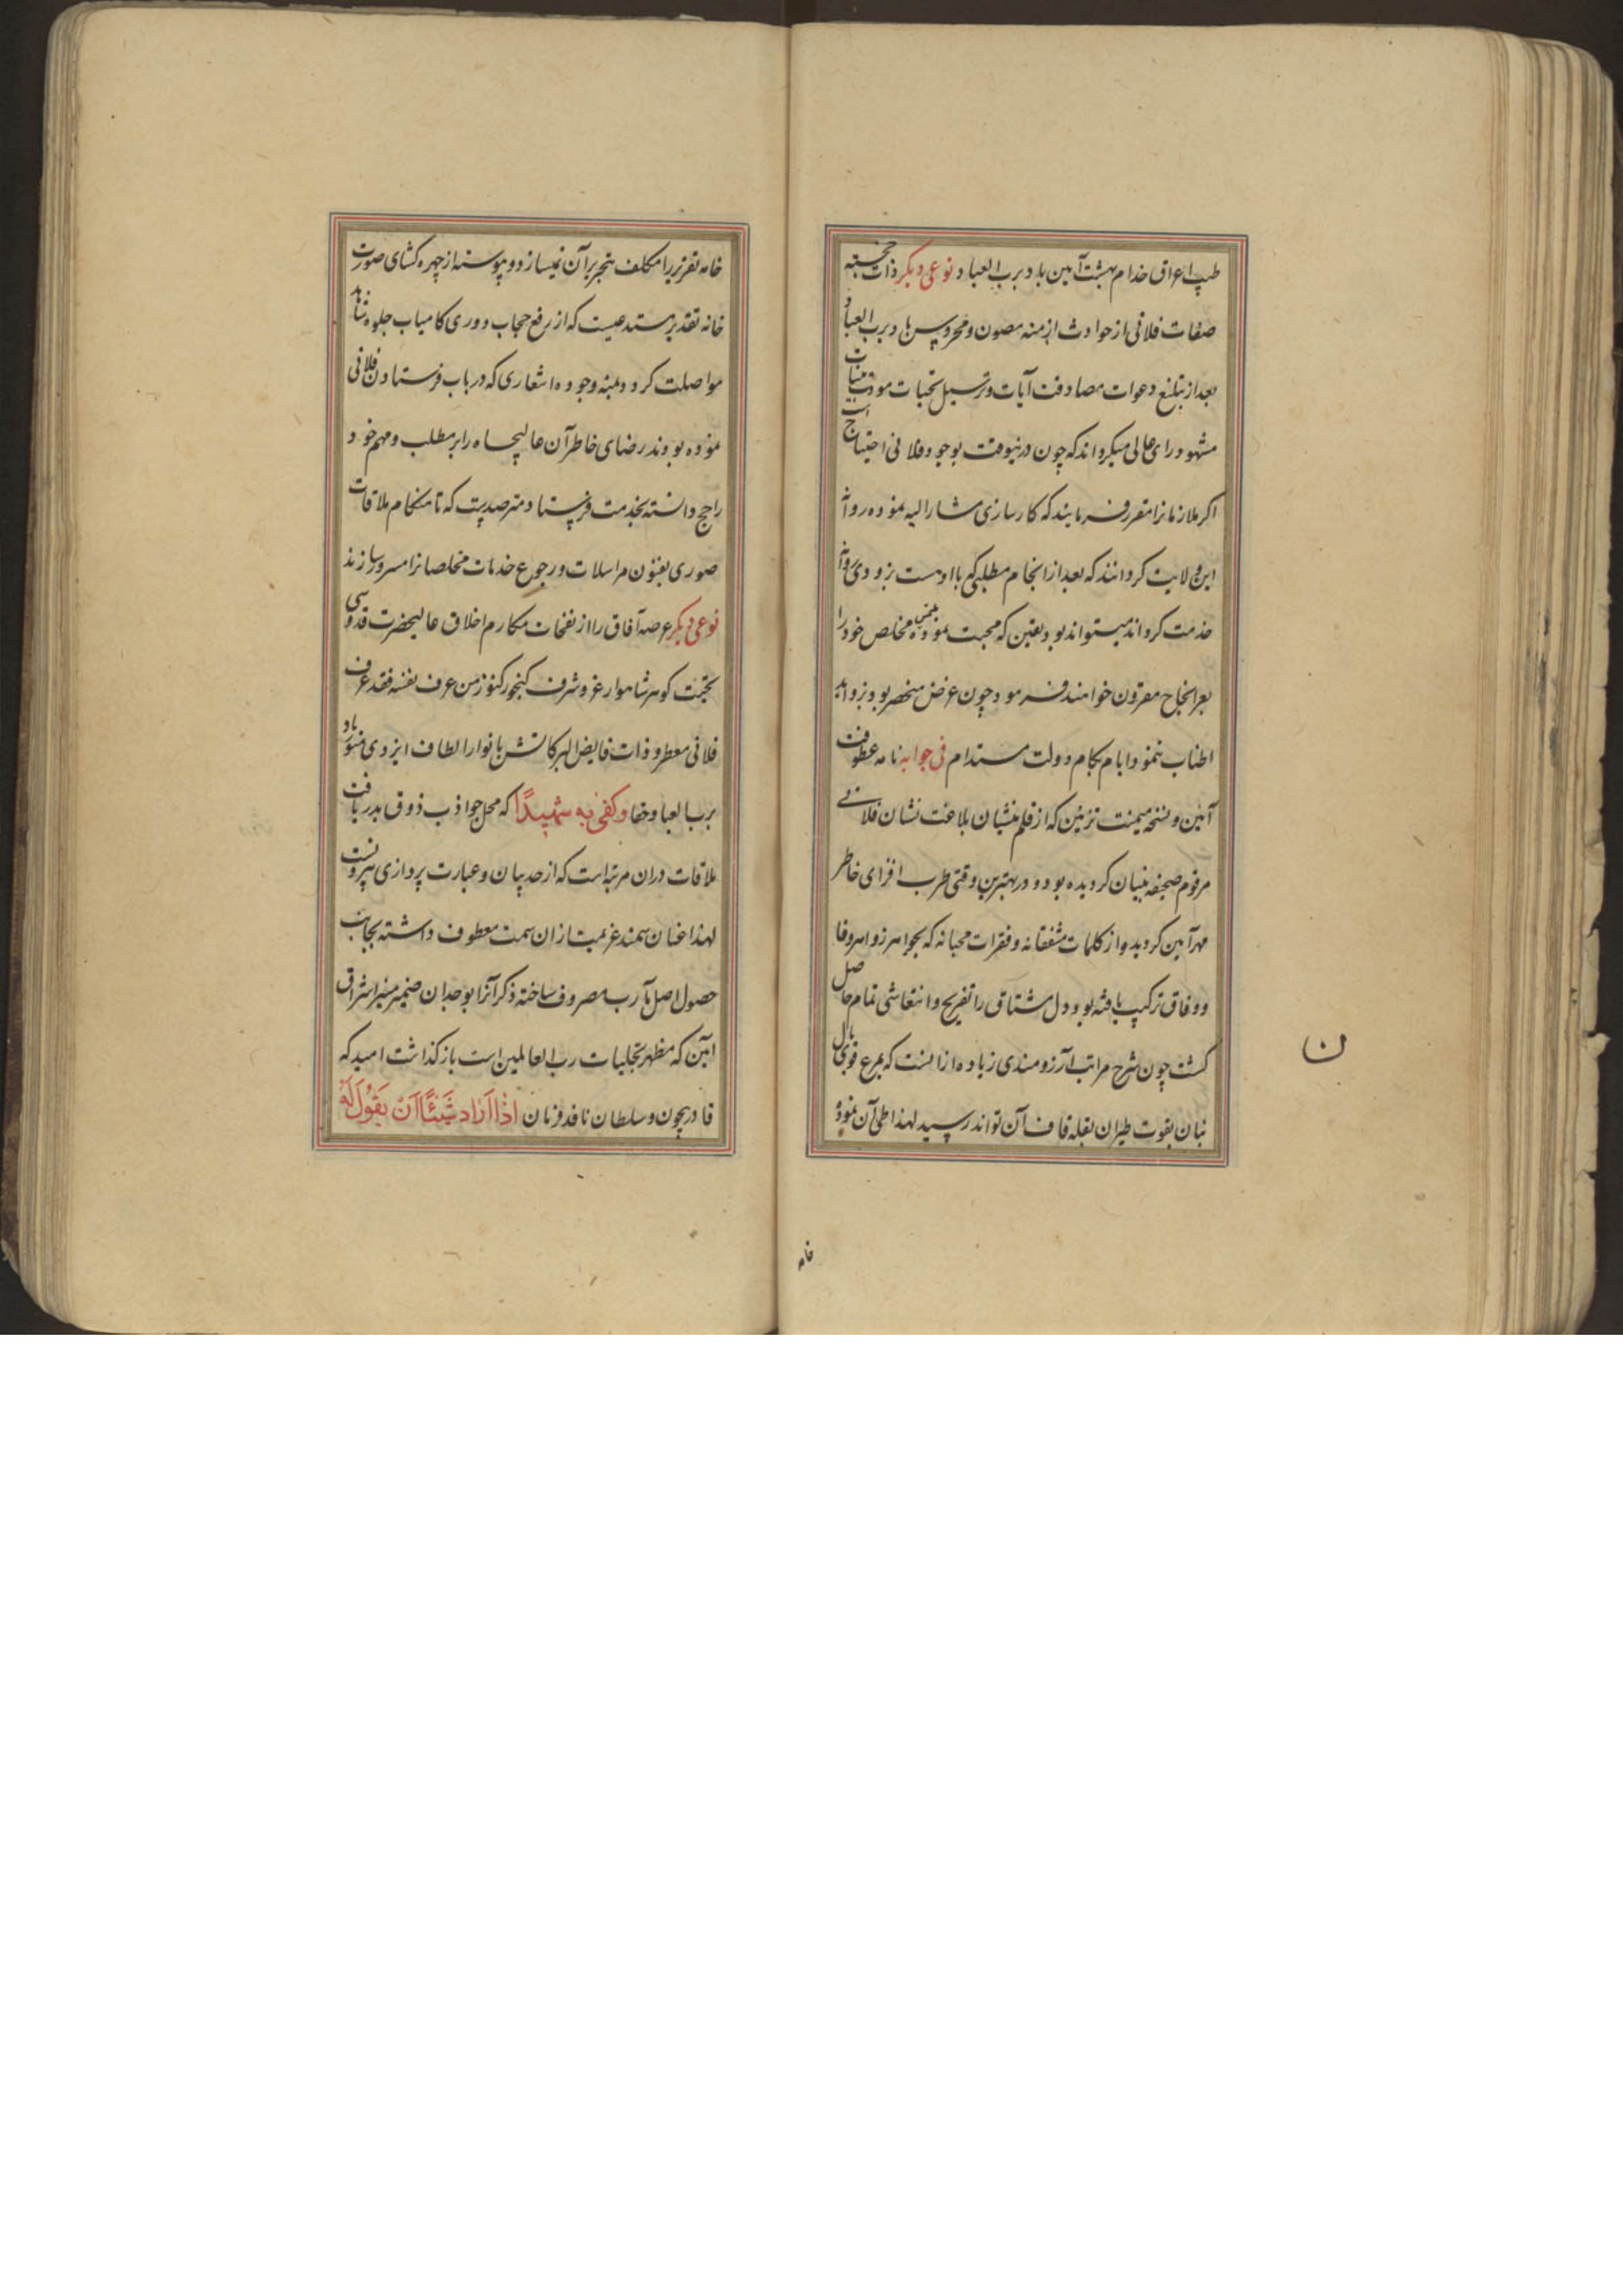 طیب اعراق خدام بهشت آیین باد برب العباد نوعی دیکر ذات خجسته
صفات فلانی از حوادث ازمنه مصون و محروس باد برب العباد
بعد از تبلیغ دعوات مصادقت آیات و ترسیل تحیات مودت بینات
مشهود رای عالی میکرداند که چون درینوقت بوجود فلانی احتیاج است
اکر ملازمانرا مقرر فرمایند که کارسازی مشار الیه نموده روانه
این ولایت کردانند که بعد از انجام مطلبی که با اوست بزودی روانه
خدمت کرداند میتواند بود یقین که محبت نموده مخلص خود را
بعز انجاح مقرون خواهند فرمود چون غرض منحصر بود بزواید
اطناب ننمود ایام بکام و دولت مستدام فی جوابه نامه عطوفت
آئین و نسخه میمنت تزئین که از قلم منشیان بلاغت نشان فلانی
مرقوم صحیفه بنیان کردیده بود و در بهترین وقتی طرب افزای خاطر
مهر آیین کردید و از کلمات مشفقانه و فقرات محبانه که بجواهر زواهر وفا
و وفاق ترکیب یافته بود دل مشتاق را تفریح و انتعاشی تمام حاصل
کشت چون شرح مراتب آرزومندی زیاده از انست که بمرغ قوی بال
بنان بقوت طیران بقله قاف آن تواند رسید لهذا طی آن نموده
خامه
ن
خامه تقریر را مکلف بتحریر آن نمیسازد و پیوسته از چهره کشای صورت
خانه تقدیر مستدعیست که از رفع حجاب دوری کامیاب جلوه شاهد
مواصلت کردد بمنه وجوده اشعاری که در باب فرستادن فلانی
نموده بودند رضای خاطر آن عالیجاه را بر مطلب و مهم خود
راجح دانسته بخدمت فرستاد مترصدیست که تا هنکام ملاقات
صوری بعنوان مراسلات و رجوع خدمات مخلصانرا مسرور سازند
نوعی دیکر عرصه آفاق را از نفخات مکارم اخلاق عالیحضرت قدوسی
کوهر شاهوار عز و شرف کنجور کنوز من عرف نفسه فقد عرف
فلانی معطر و ذات فایض البرکاتش بانوار الطاف ایزدی منور باد
برب العباد وحقا وکفی به شهیدا که محل جواذب ذوق بدریافت
ملاقات دران مرتبه است که از حد بیان و عبارت پردازی بیرونست
لهذا عنان سمند عزیمت از ان سمت معطوف داشته بجانب
حصول اصل مآرب مصروف ساخته ذکر آنرا بوجدان ضمیر منیر اشراق
آیین که مظهر تجلیات رب العالمین است باز کذاشت امید که
قادر بیچون و سلطان نافذ فرمان اذا اراد شیئا ان یقول له